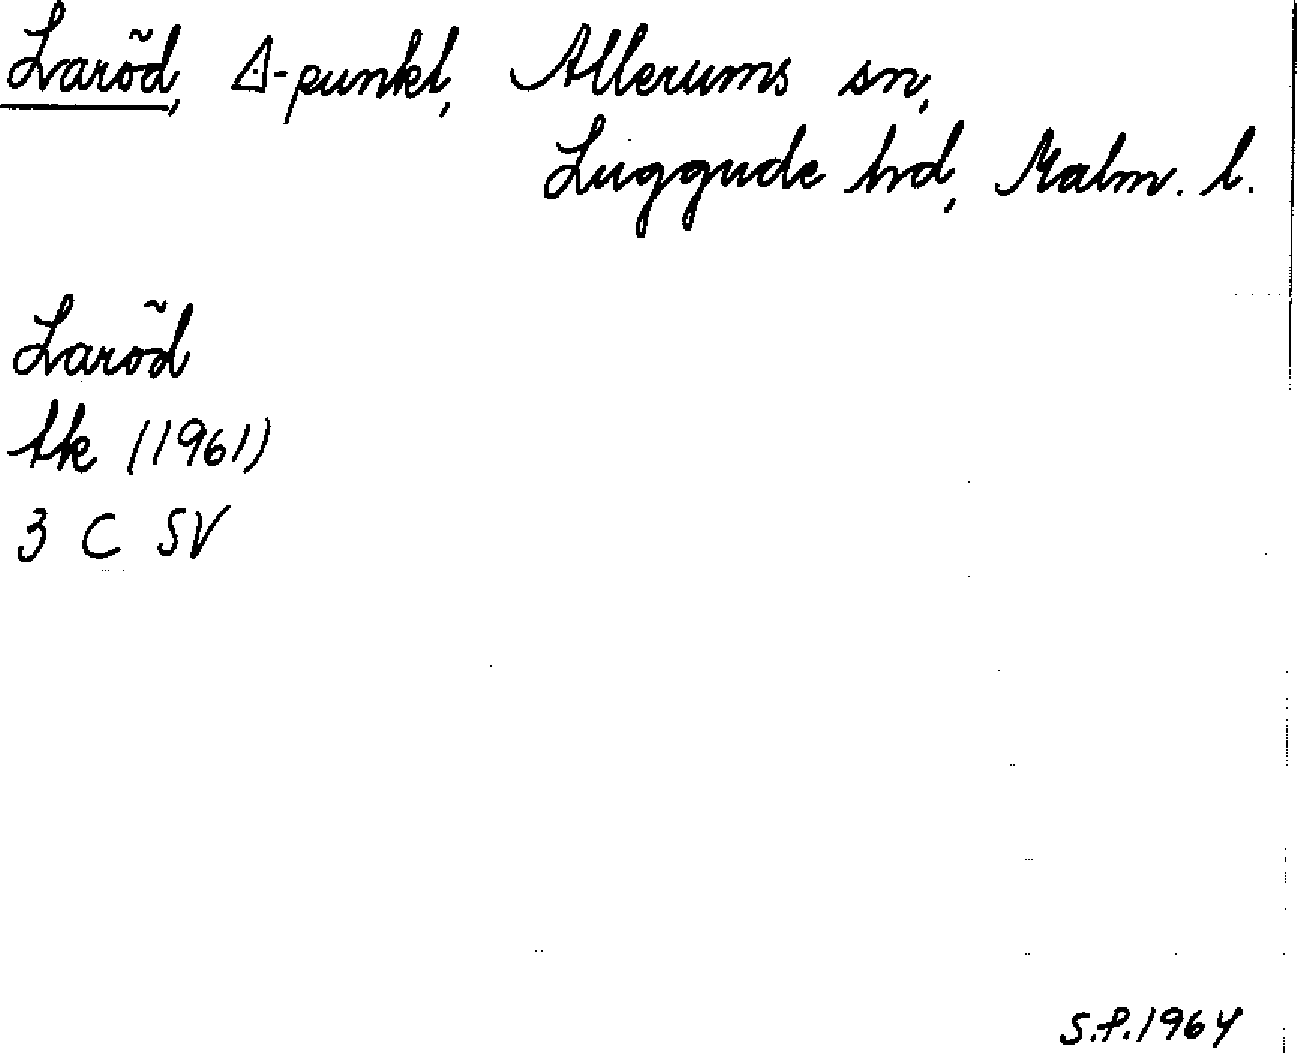 Laröd, △-punkt, Allerums sn,
Luggude hrd, Malm. l.
Laröd
tk (1961)
3 C SV
S.F. 1964